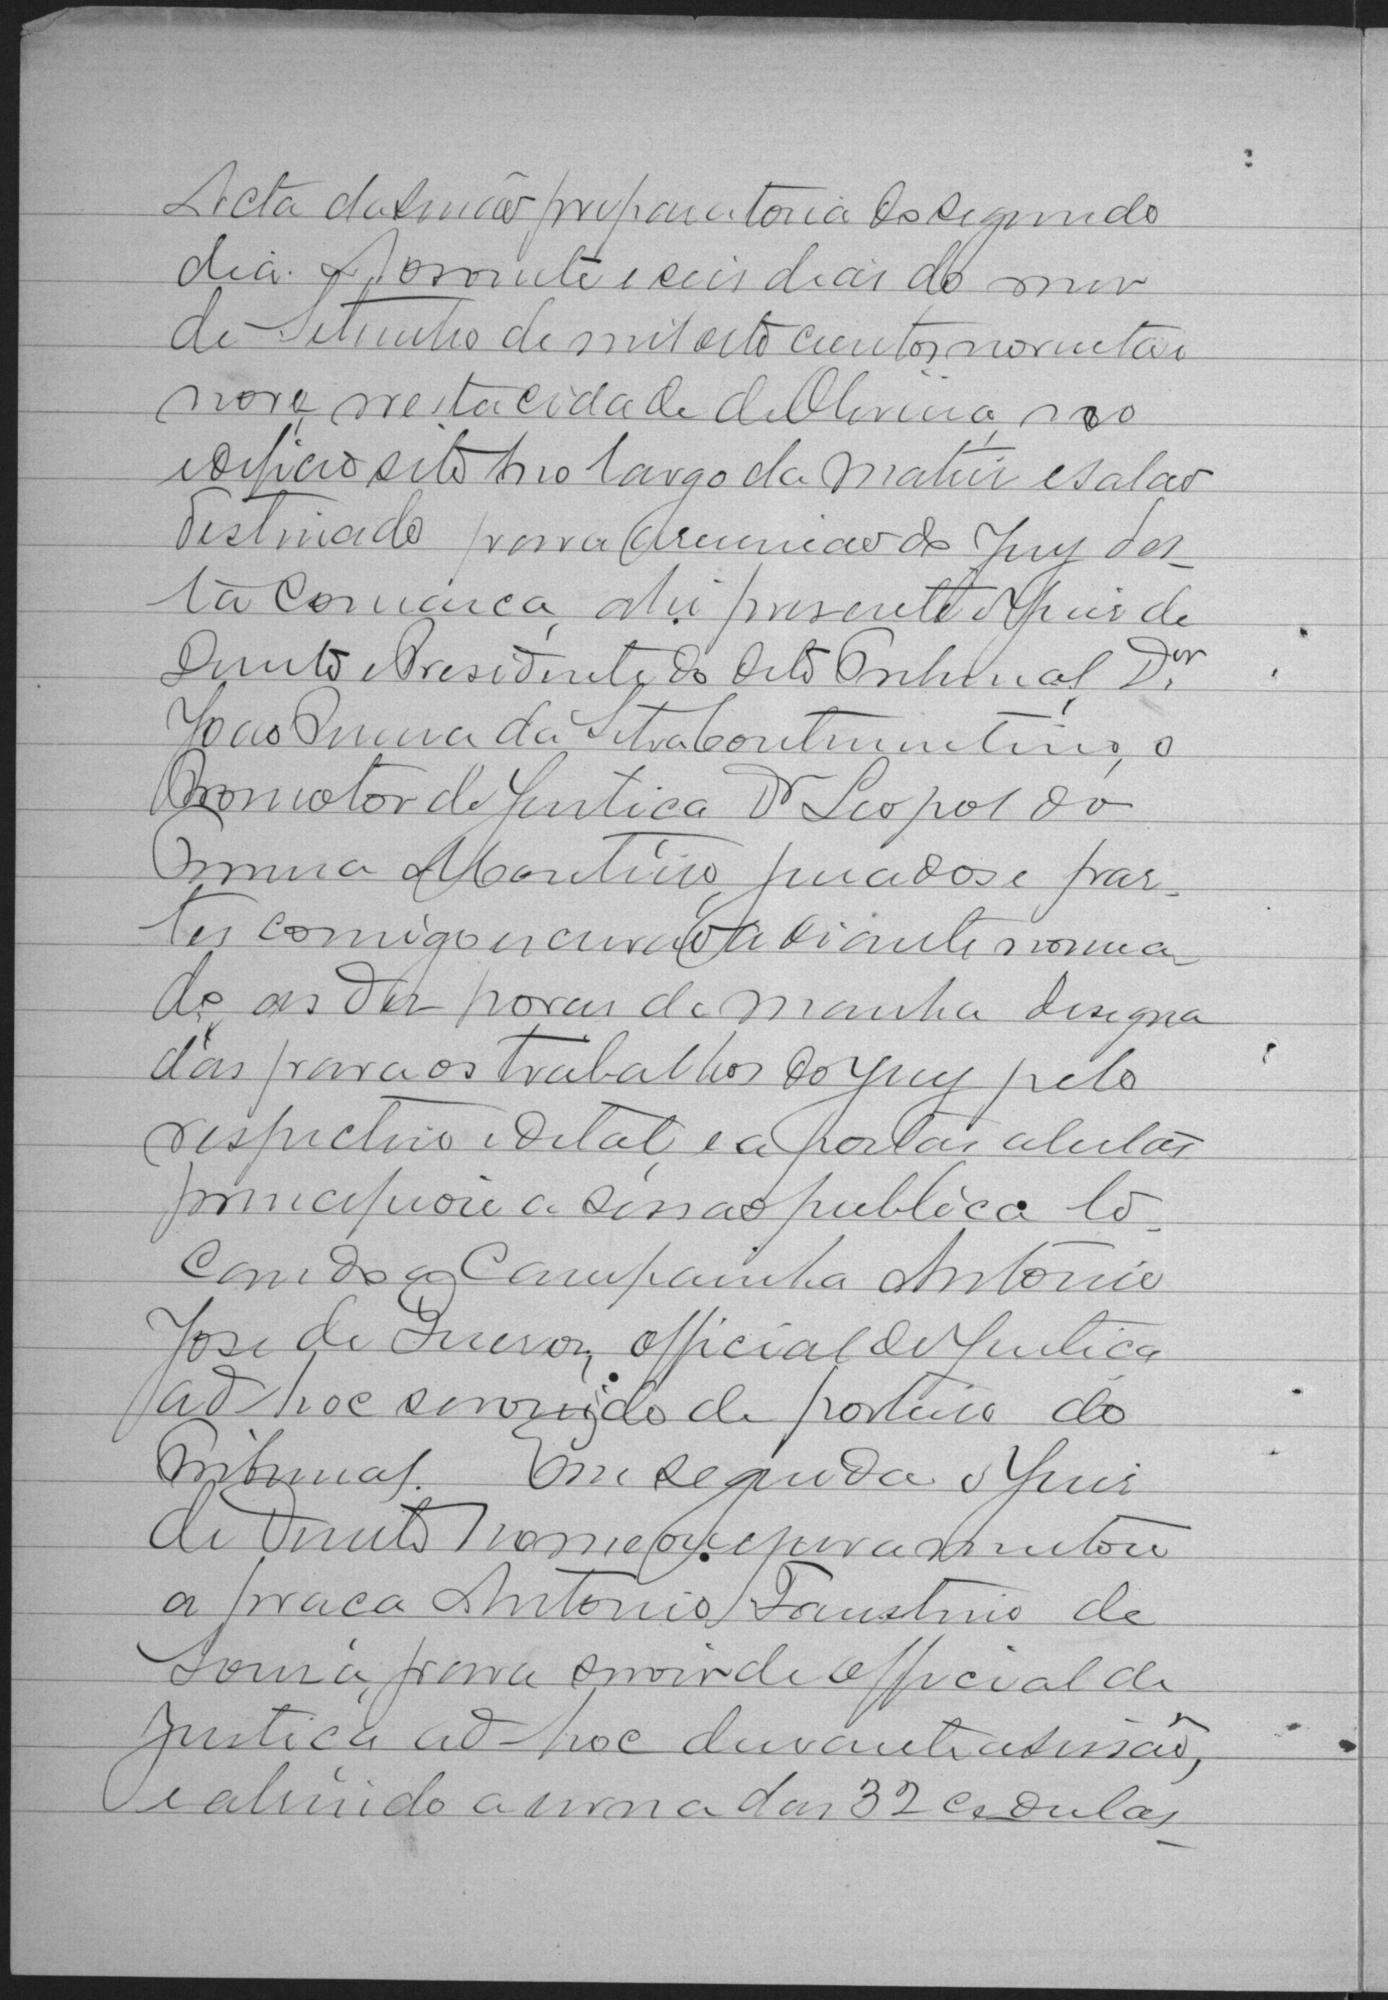 Acta da sessão preparatoria do segundo
dia. Aos vinte e seis dias do mez
de Setembro de mil oito centos noventa e
nove, nesta cidade de Oliveira, no
edificio sito no largo da Matriz e salão
destinado para a reunião do Jury des-
ta Comarca, ahi presente o Juiz de
Direito e Presidente do dito Tribunal, Dr
João da Silva o
Promotor de Justiça Dr Leopoldo
Monteiro, jurados e par-
tes comigo escrivão adiante nomea
do, as dez horas da manhã designa
das para os trabalhos do Jury pelo
respectivo edital, e a portas abertas
principiou a sessão publica to-
cando a Campainha Antonio
José de official de Justiça
ad-hoc servindo de porteiro do
Tribunal. Em seguida o Juiz
de Direito nomeou e juramentou
a praça Antonio Faustino de
Souza, para servir de official de
Justiça ad-hoc durante a sessão,
e abrindo a urna das 32 cedulas